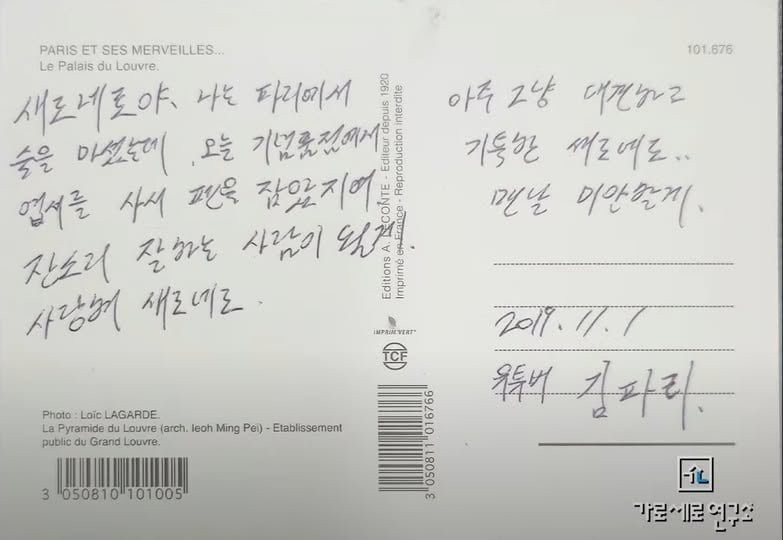 PARIS ET SES MERVEILLES...
Le Palais du Louvre.
101.676
새로네로야, 나는 파리에서
술을 마셨는데, 오늘 기념품점에서
엽서를 사서 펜을 잡았지여.
잔소리 잘하는 사람이 될게!
사랑혀 새로네로.
아주 그냥 대견하고
기특한 새로네로..
맨날 미안할게.
2019. 11. 1
유투버 김파리.
Editions A. LECONTE - Editeur depuis 1920
Imprimé en France - Reproduction interdite
IMPRIM'VERT
TCF
Photo : Loïc LAGARDE.
La Pyramide du Louvre (arch. Ieoh Ming Pei) - Etablissement
public du Grand Louvre.
3 050810 101005
3 050811 016766
가로세로연구소